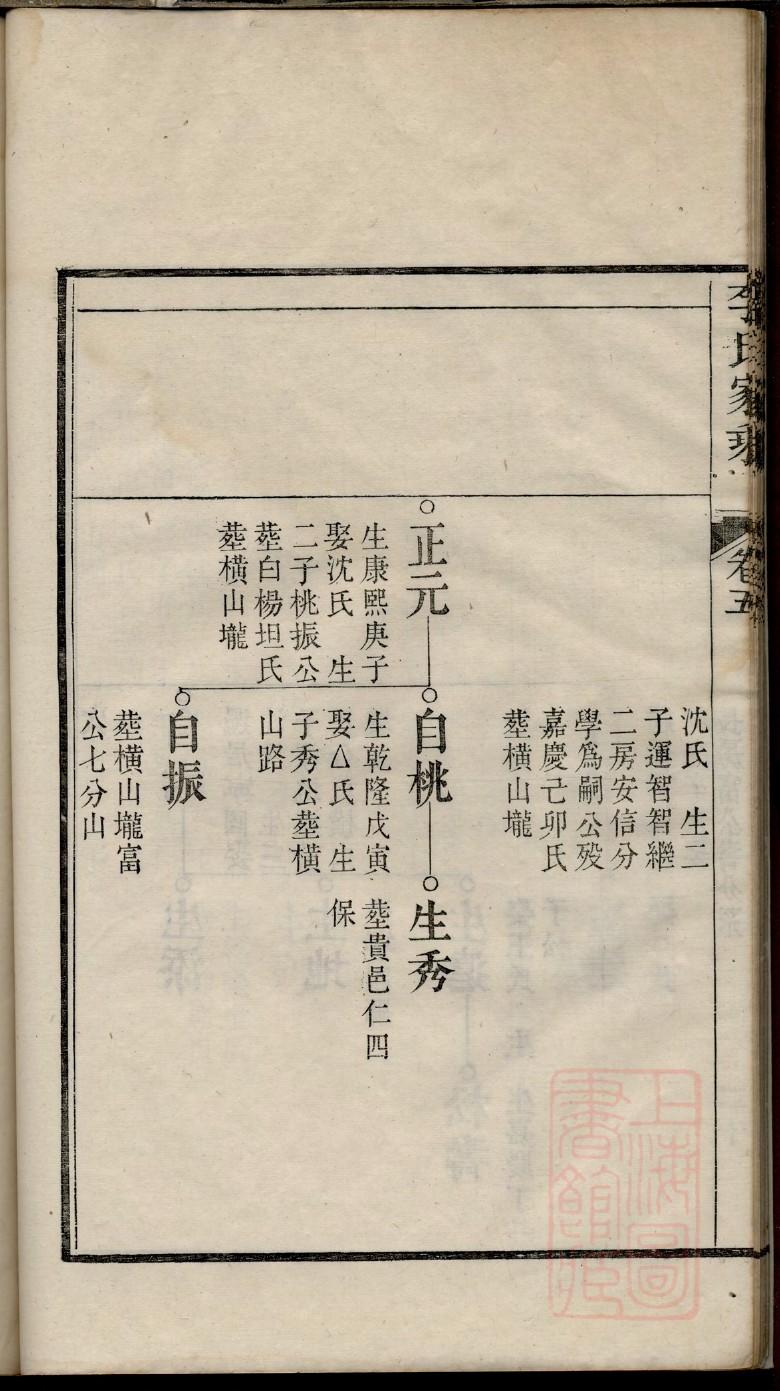 李氏家乘
卷五
沈氏　生二
子運智智繼
二房安信分
學爲嗣公歿
嘉慶己卯氏
塟橫山壠
正元
生康熙庚子
娶沈氏　生
二子桃振公
塟白楊坦氏
塟橫山壠
自桃
生乾隆戊寅
娶△氏　生
子秀公塟橫
山路
生秀
塟貴邑仁四
保
自振
塟橫山壠富
公七分山
上海圖
書館藏